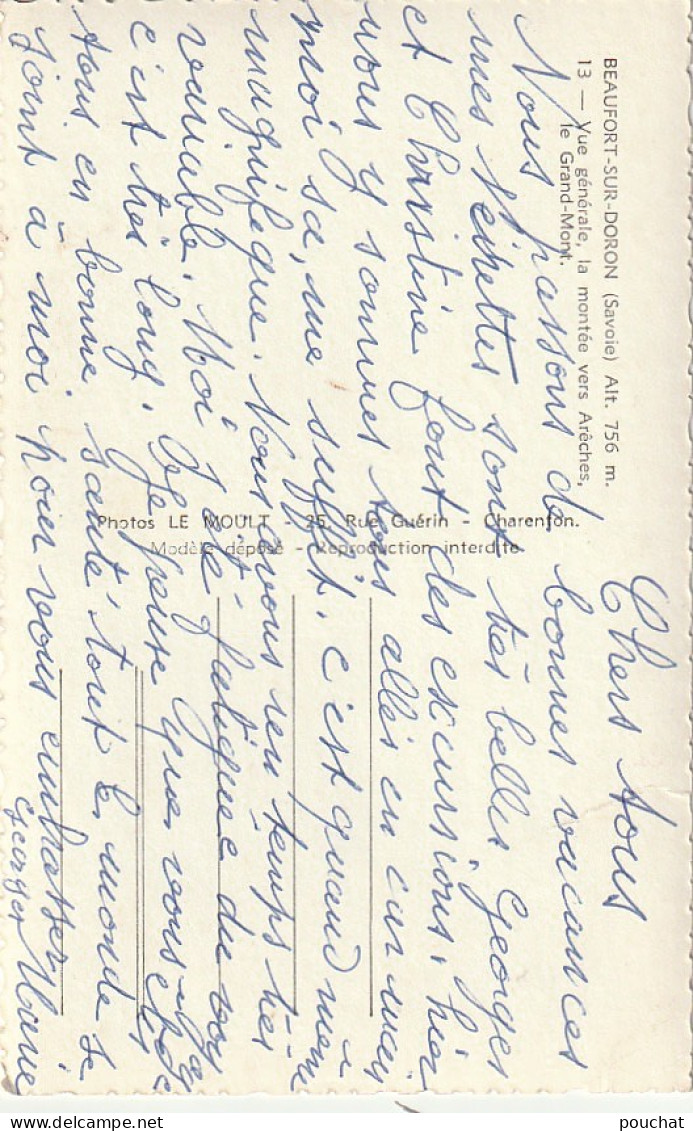 BEAUFORT-SUR-DORON (Savoie) Alt. 756 m.
13 — Vue générale, la montée vers Arêches,
le Grand-Mont.
Chers tous
Nous passons de bonnes vacances
mes sont très belles Georges
et Christine font des excursions, hier
nous y sommes tous allés en car mais
moi sa, me suffit, c'est quand même
magnifique. Nous avons un temps très
variable. Moi j'ai été fatiguée du voyage
c'est très long. Je pense que vous êtes
tous en bonne santé tout le monde se
joint à moi pour vous embrasser
Georges Marie
Photos LE MOULT - 25, Rue Guérin - Charenton.
Modèle déposé - Reproduction interdite
www.delcampe.net
pouchat